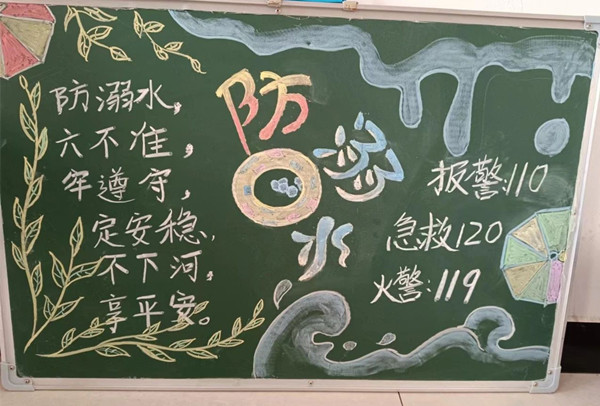 防溺水,
六不准,
牢遵守,
定安稳,
不下河,
享平安。
防溺水
报警:110
急救120
火警:119